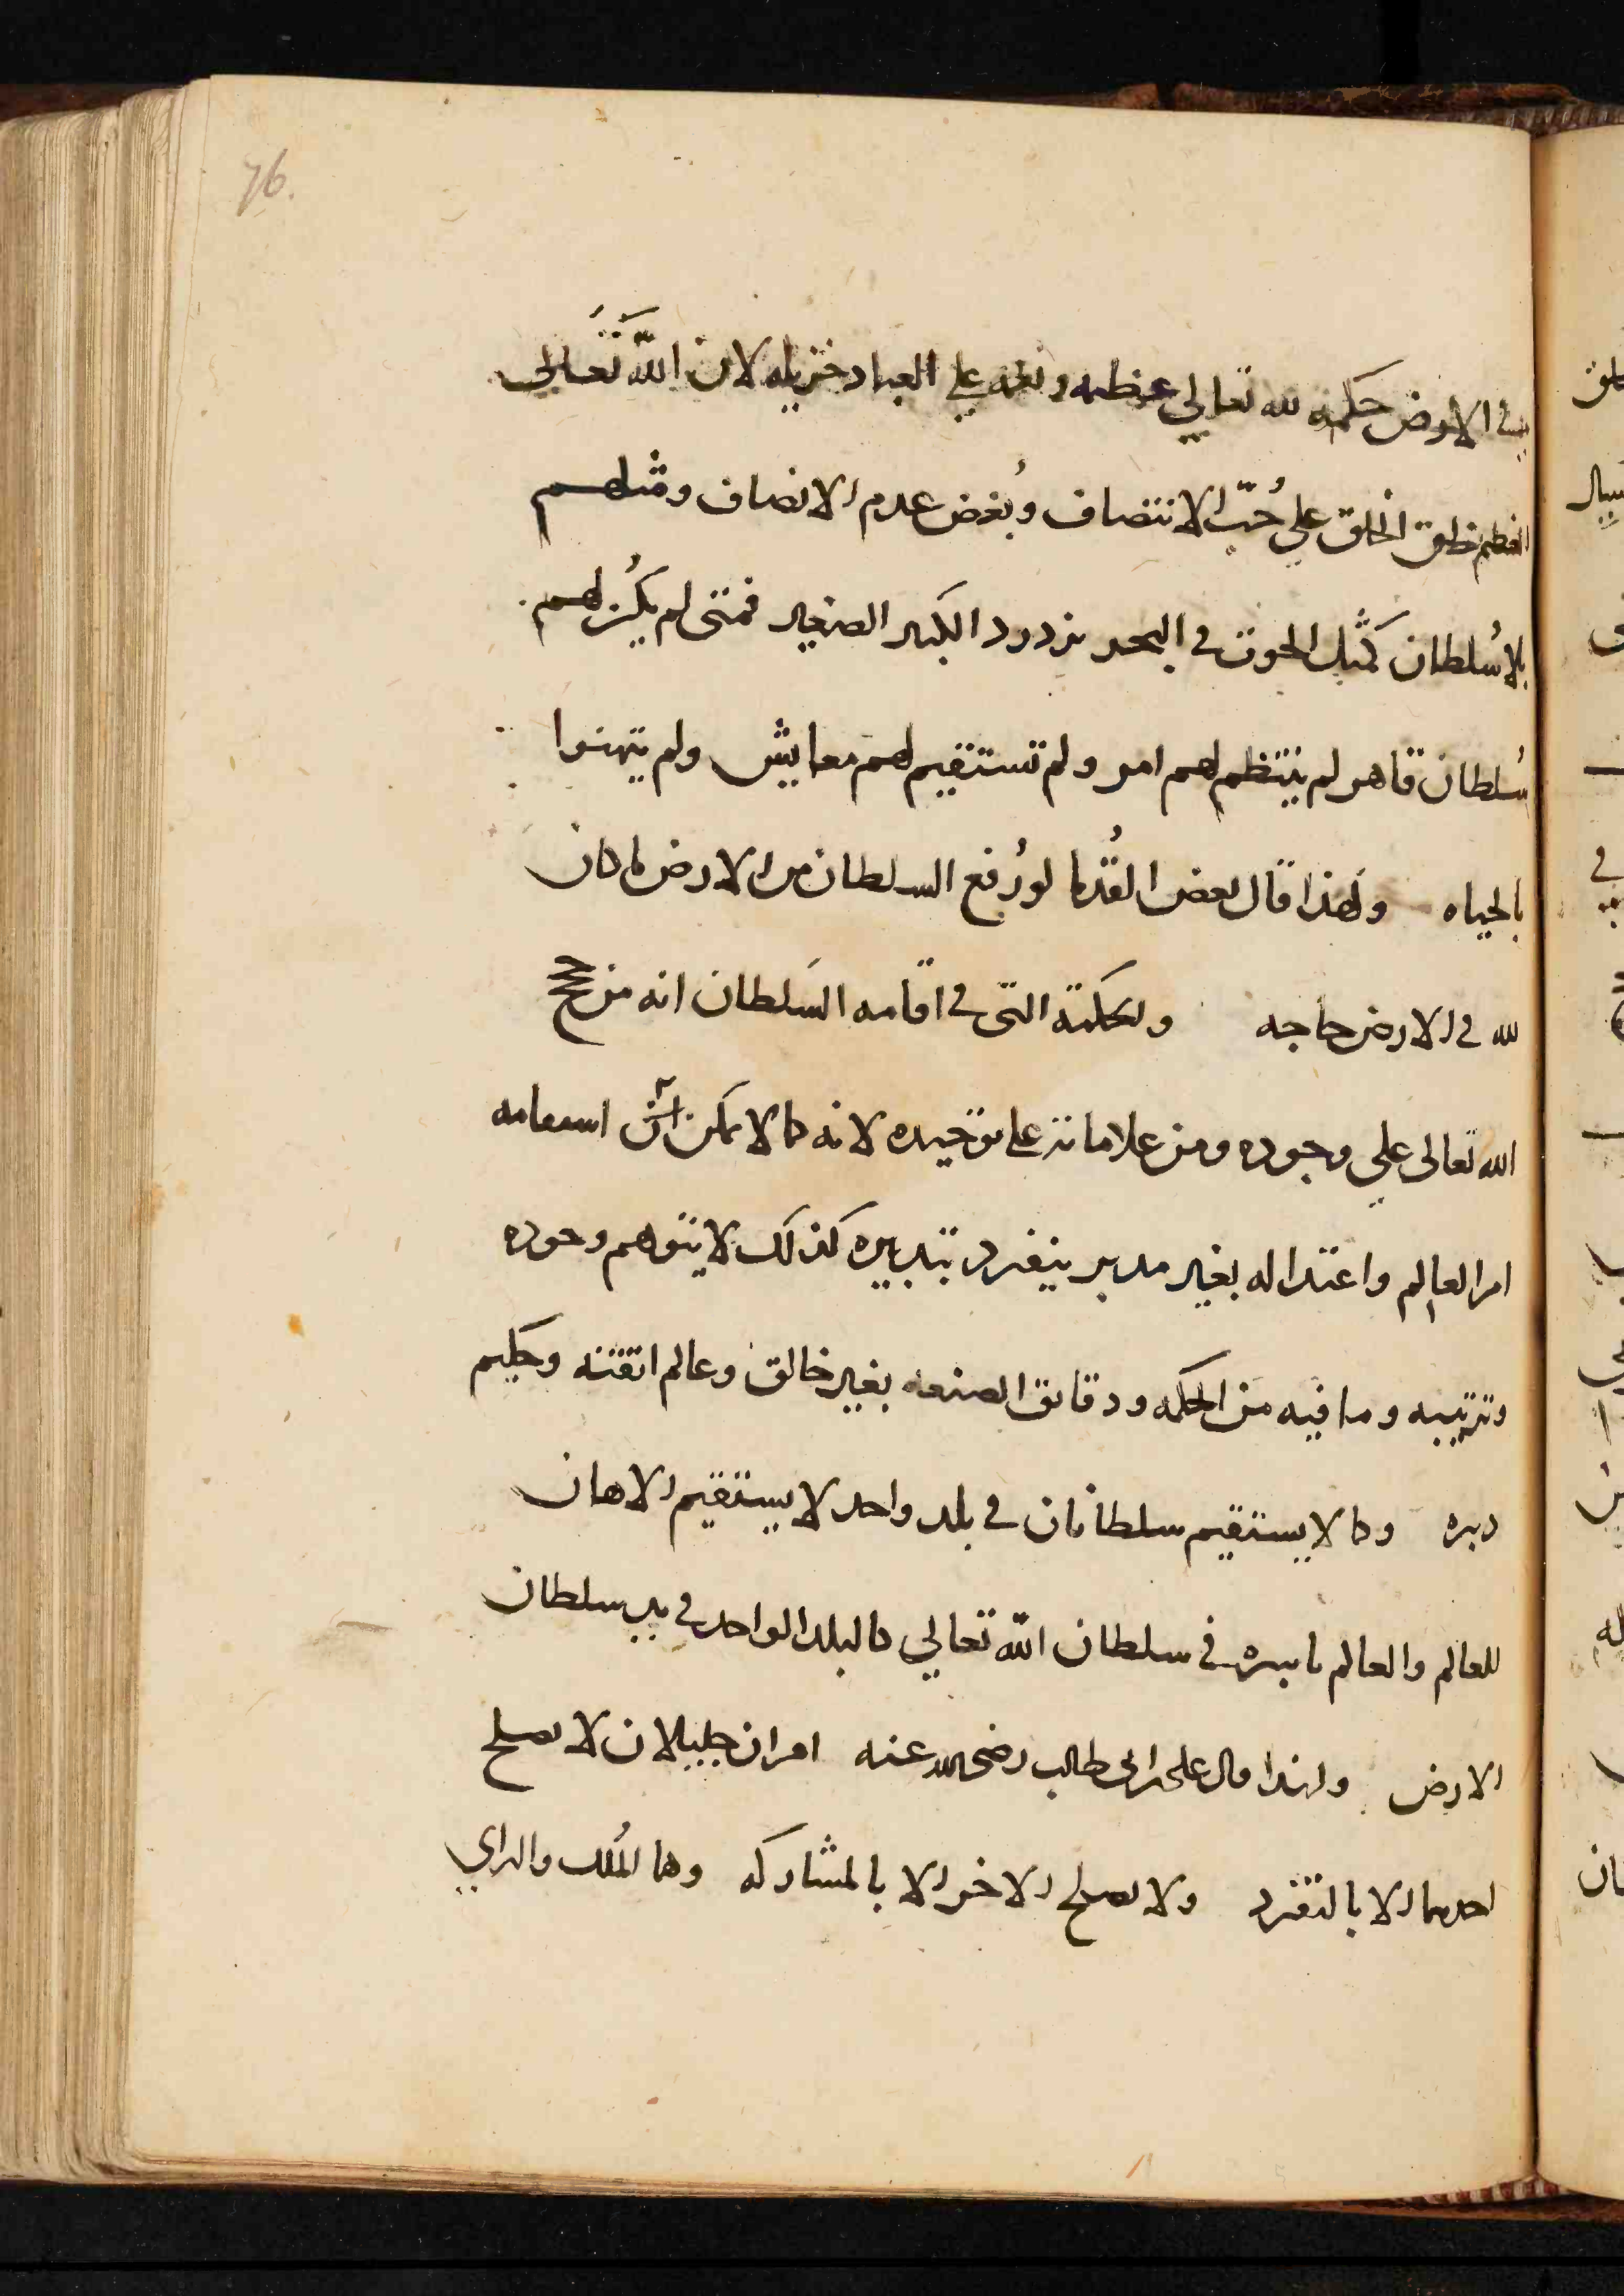 76.
في الارض حكمه لله تعالي عظيمه ونعمه علي العباد جزيله لان اللّه تَعَالي
العظيم خلق الخلق علي حُبّ الانتصاف وبُغض عدم الانصاف ومثلهم
بلا سُلطان كَمثل الحوت في البحر يزدرد الكبير الصغير فمتى لم يكُن لهم
سُلطان قاهر لم ينتظم لهم امر ولم تستقيم لهم معايش ولم يتهنوا
بالحياه ولهذا قال بعض القُدما لو رُفع السلطان من الارض لما كان
لله في الارض حاجه والحكمة التى في اقامه السَلطان انه من حجج
الله تعالى علي وجوده ومن علاماته على توحيده لانه كما لا يمكن استقامه
امر العالم واعتداله بغير مدبر ينفرد بتدبيره كذلك لا يتوهم وجوده
وترتيبه وما فيه من الحكمه ودقايق الصنعه بغير خالق وعالم اتقنه وحكيم
دبره وكما لا يستقيم سلطانان في بلد واحد لا يستقيم الاهان
للعالم والعالم باسره في سلطان اللّه تعالي كالبلد الواحد في يد سلطان
الارض ولهذا قال على بن ابى طالب رضى الله عنه امران جليلان لا يصلح
احدهما الا بالتفرد ولا يصلح الاخر الا بالمشاركه وهما المُلك والراي